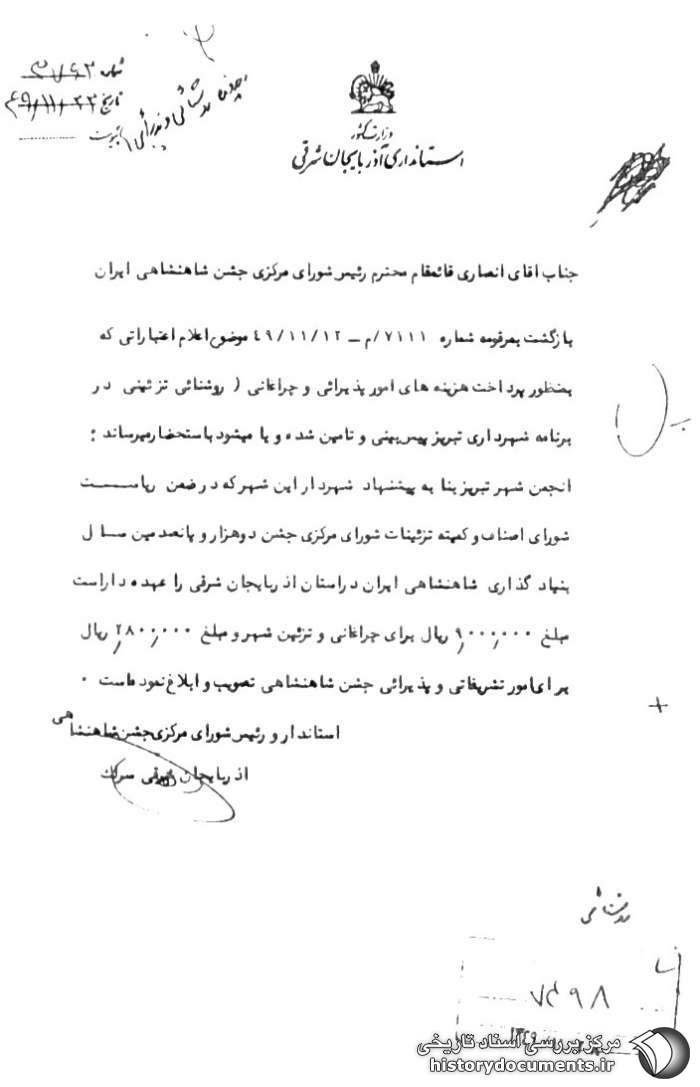 شماره ۳۱۷۶۳
تاریخ ۴۹/۱۱/۲۳
پیوست
وزارت کشور
استانداری آذربایجان شرقی
جناب اقای انصاری قائمقام محترم رئیس شورای مرکزی جشن شاهنشاهی ایران
بازگشت بمرقومه شماره ۷۱۱۱/م – ۴۹/۱۱/۱۲ موضوع اعلام اعتباراتی که
بمنظور پرداخت هزینه های امور پذیرائی و چراغانی ( روشنائی تزئینی در
برنامه شهرداری تبریز پیش بینی و تامین شده و یا میشود باستحضار میرساند :
انجمن شهر تبریز بنا به پیشنهاد شهردار این شهر که در ضمن ریاست
شورای اصناف و کمیته تزئینات شورای مرکزی جشن دوهزار و پانصدمین سال
بنیاد گذاری شاهنشاهی ایران در استان اذربایجان شرقی را عهده داراست
مبلغ ۹٫۰۰۰٫۰۰۰ ریال برای چراغانی و تزئین شهر و مبلغ ۲٫۸۰۰٫۰۰۰ ریال
برای امور تشریفاتی و پذیرائی جشن شاهنشاهی تصویب و ابلاغ نموده است .
استاندار و رئیس شورای مرکزی جشن شاهنشاهی
اذربایجان شرقی سرلک
روشنائی
۷۴۹۸
۱۳۴۹
مرکز بررسی اسناد تاریخی
historydocuments.ir